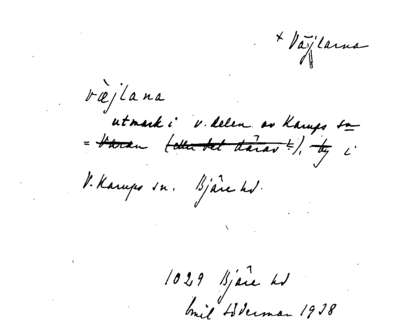 × Väjlarna
væjlana
utmark i v. delen av Karups sn
= Varan (eller del därav?), by i
V. Karups sn. Bjäre hd.
1029 Bjäre hd
Emil Söderman 1938